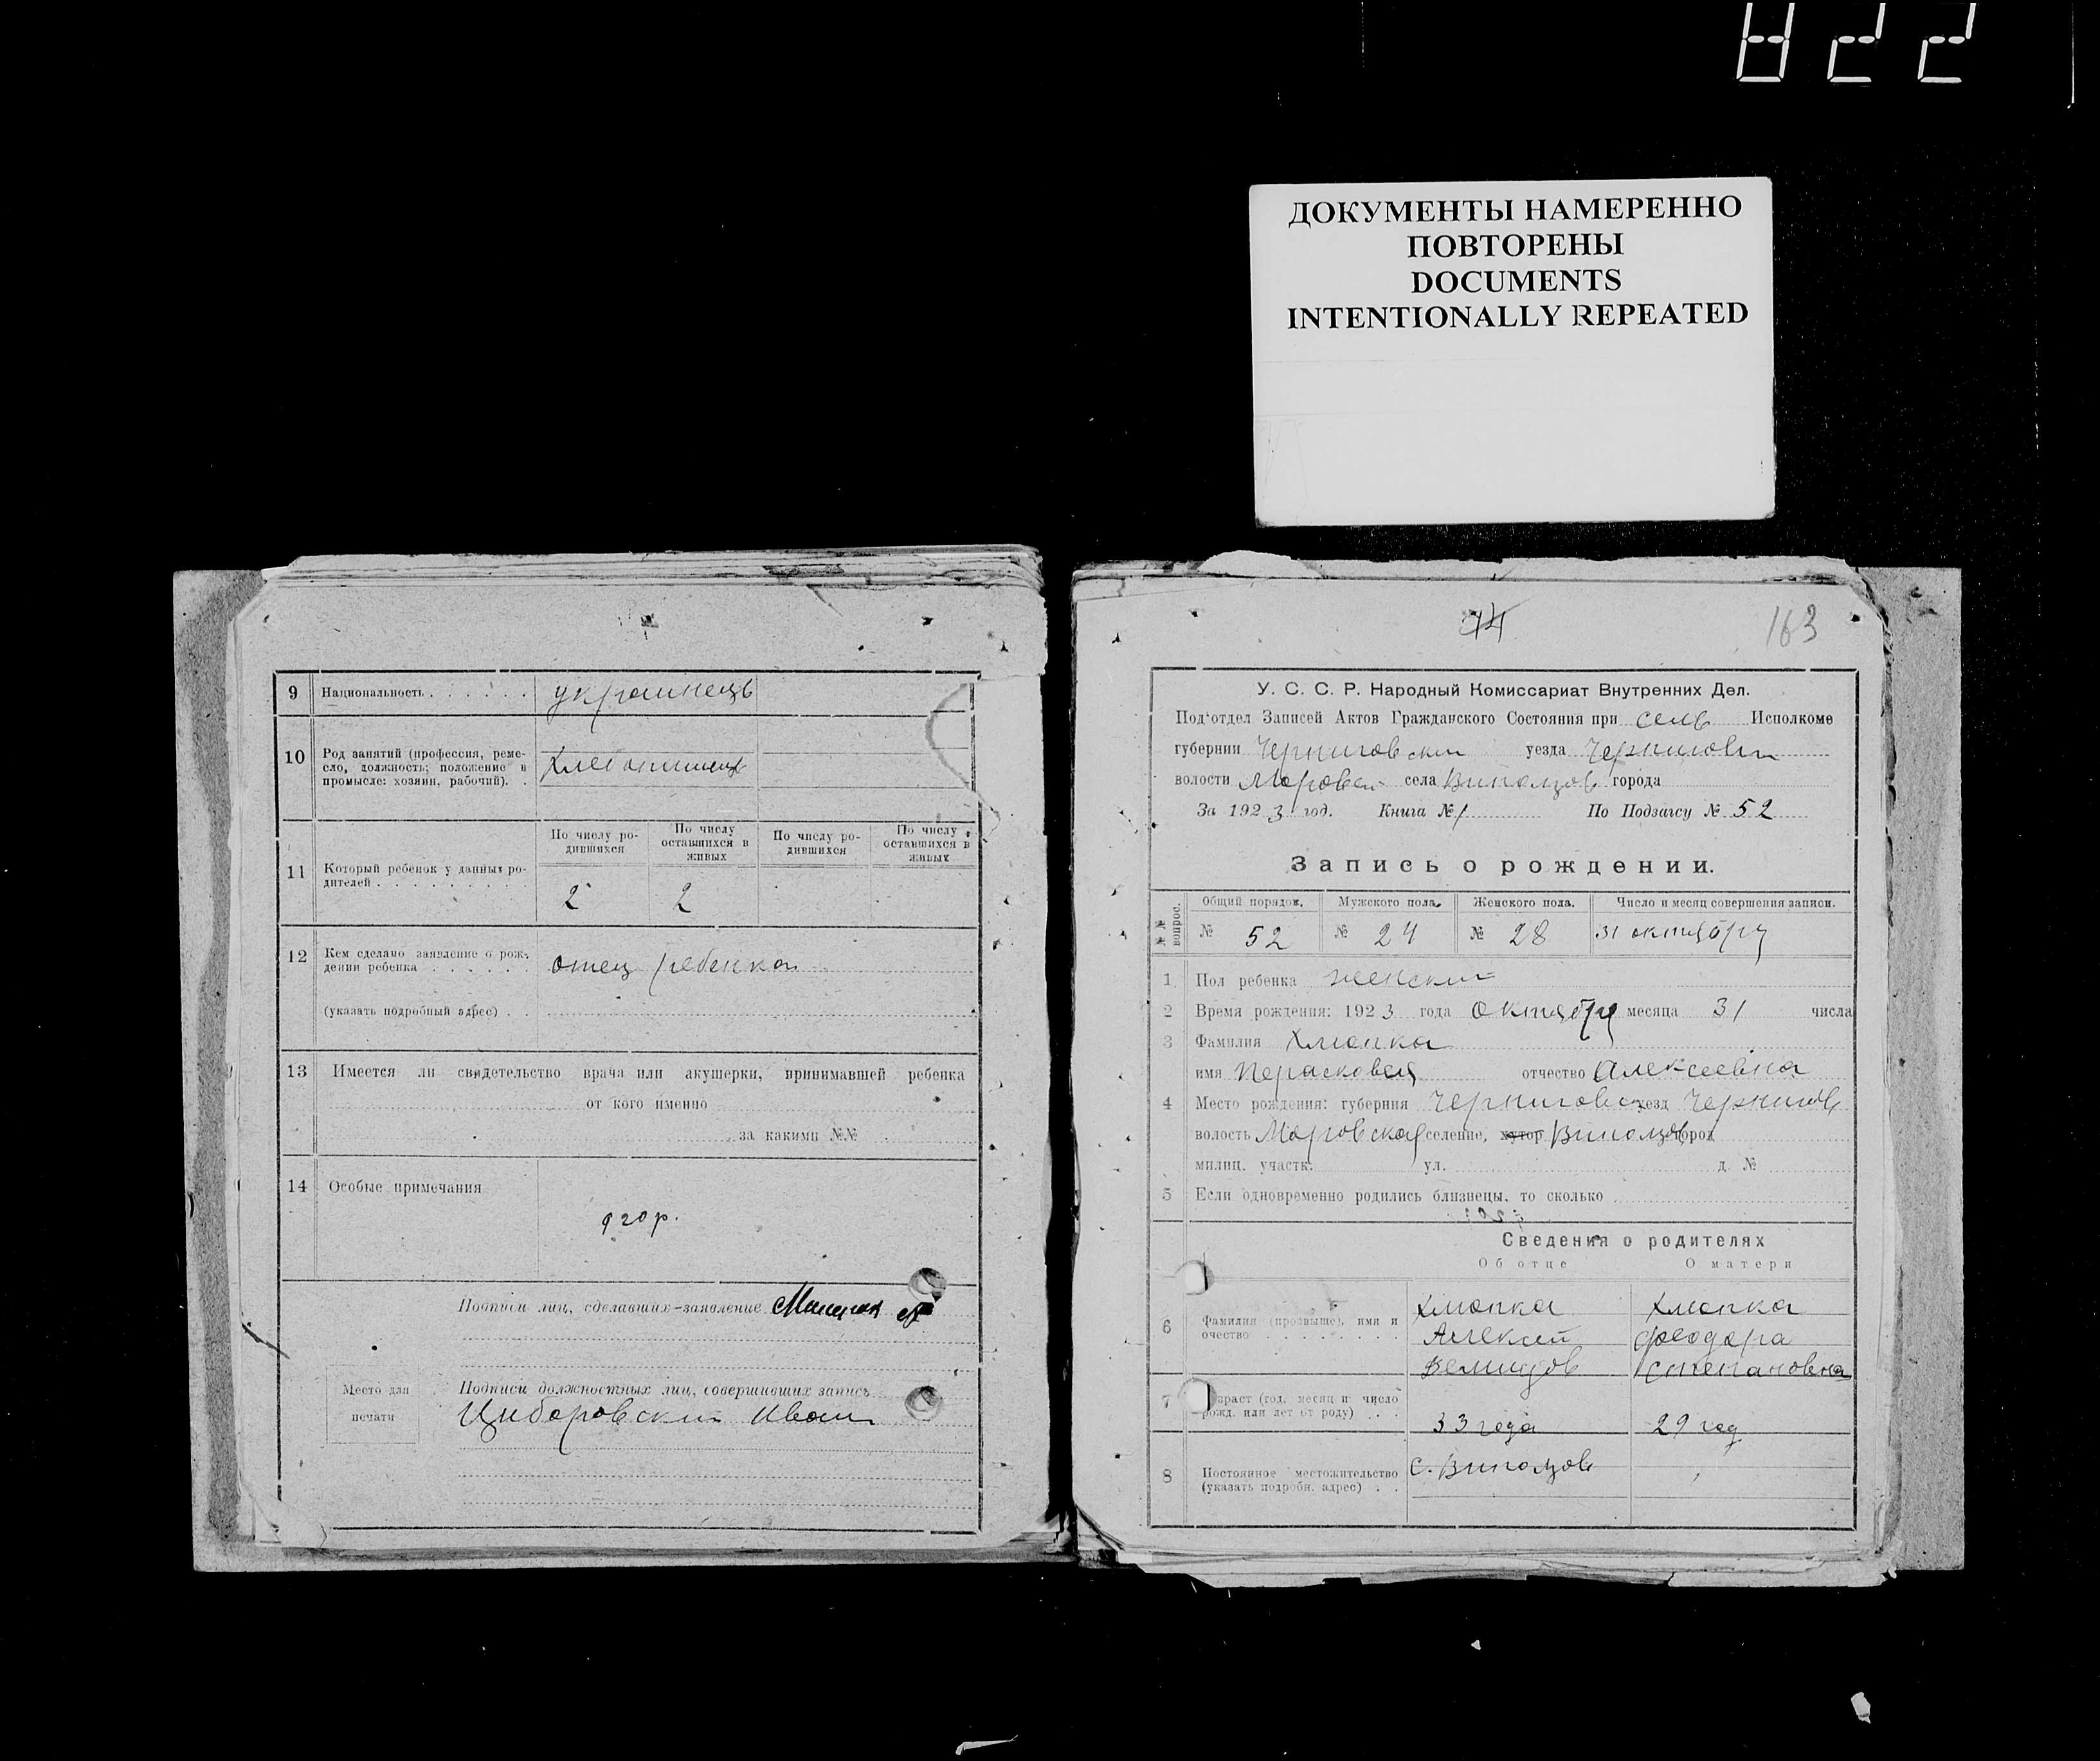 822
ДОКУМЕНТЫ НАМЕРЕННО
ПОВТОРЕНЫ
DOCUMENTS
INTENTIONALLY REPEATED
9 Национальность украинець
10 Род занятий (профессия, реме-
сло, должность; положение в
промысле: хозяин, рабочий).
11 Который ребенок у данных ро-
дителей
По числу ро-
дившихся
По числу
оставшихся в
живых
По числу ро-
дившихся
По числу
оставшихся в
живых
2 2
12 Кем сделано заявление о рож-
дении ребенка отец ребенка
(указать подробный адрес)
13 Имеется ли свидетельство врача или акушерки, принимавшей ребенка
от кого именно
за какими №№
14 Особые примечания
Подписи лиц, сделавших заявление
Место для
печати
Подписи должностных лиц, совершивших запись
Циборовский Иван
74 163
У. С. С. Р. Народный Комиссариат Внутренних Дел.
Под'отдел Записей Актов Гражданского Состояния при сель Исполкоме
губернии Черниговский уезда Чернигов
волости Моровск села Виползов города
За 1923 год. Книга № 1 По Подзагсу № 52
Запись о рождении.
№№ вопрос. Общий порядов. Мужского пола. Женского пола. Число и месяц совершения записи.
№ 52 № 24 № 28 31 октября
1 Пол ребенка женский
2 Время рождения: 1923 года октября месяца 31 числа
3 Фамилия Хмопка
имя Перасковея отчество Алексеевна
4 Место рождения: губерния Чернигов уезд Чернигов
волость Моровская селение, хутор Виползов город
милиц. участк. ул. д. №
5 Если одновременно родились близнецы, то сколько
Сведения о родителях
Об отце О матери
6 Фамилия (прозвыще), имя и
очество
Хмопка
Алексей
Демидов
Хмопка
Феодора
Степановна
7 Возраст (год, месяц и число
рожд. или лет от роду)
33 года 29 год
8 Постоянное местожительство
(указать подробн. адрес)
с. Виползов